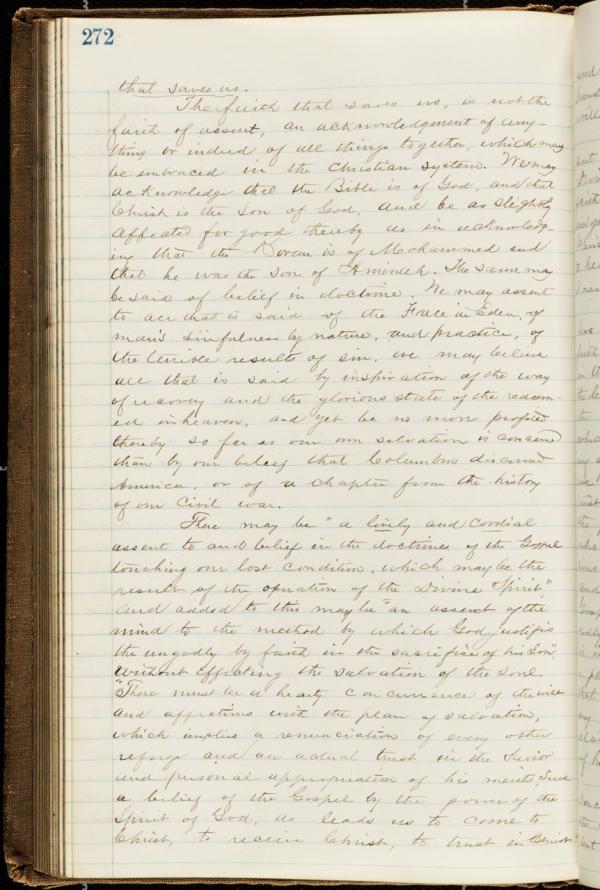 272
that saves us.
The faith that saves us, is not the
faith of assent, an acknowledgement of any-
thing or indeed of all things together, which may
be embraced in the Christian system. We may
acknowledge that the Bible is of God, and that
Christ is the Son of God, and be as slightly
affected for good thereby as in acknowledg-
ing that the Koran is of Mohammed and
that he was the son of Amineh. The same may
be said of belief in doctrine. We may assent
to all that is said of the Fall in Eden, of
man's sinfulness by nature, and practice, of
the terrible results of sin. we may believe
all that is said by inspiration of the way
of recovery and the glorious state of the redeem-
ed in heaven, and yet be no more profited
thereby so far as our own salvation is concerned
than by our belief that Columbus discovered
America, or of a chapter from the history
of our Civil war.
There may be "a lively and cordial
assent to and belief in the doctrines of the Gospel
touching our lost condition, which may be the
result of the operation of the Divine Spirit,"
and added to this may be "an assent of the
mind to the method by which God justifies
the ungodly by faith in the sacrifice of his Son",
without effecting the salvation of the soul.
"There must be a hearty concurrence of the will
and affections with the plan of salvation,
which implies a renunciation of every other
refuge and an actual trust in the Savior
and personal appropriation of his merits, Such
a belief of the Gospel by the power of the
Spirit of God, as leads us to come to
Christ, to receive Christ, to trust in Christ